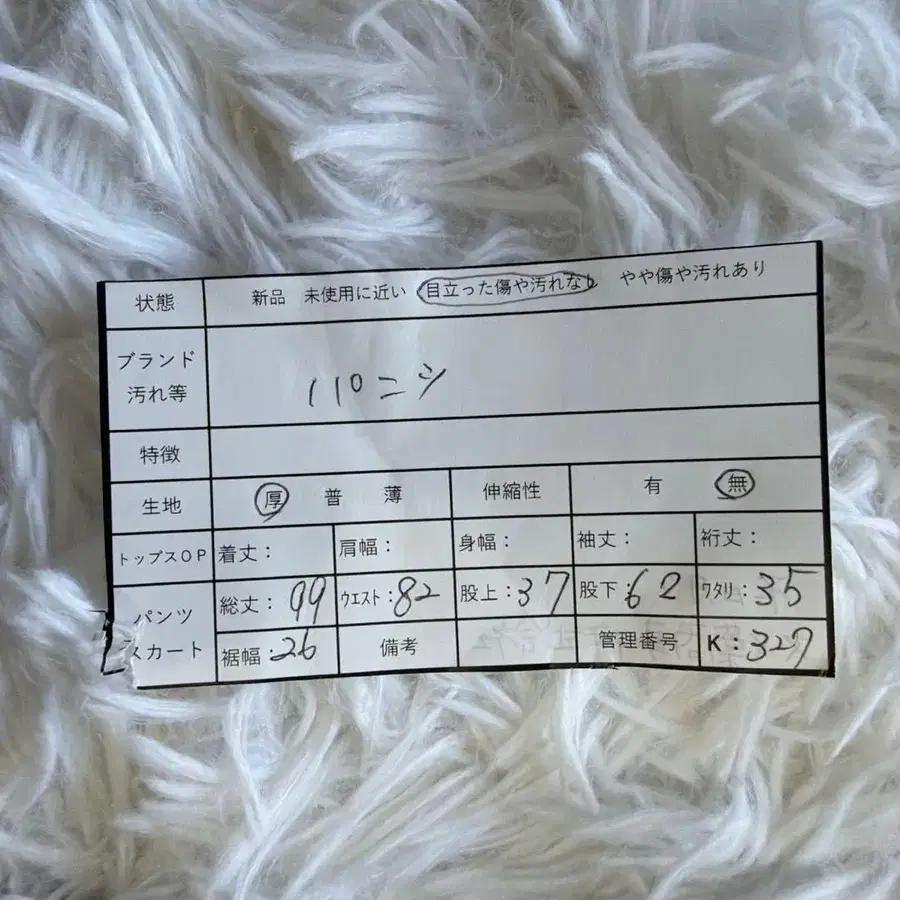 状態 新品 未使用に近い 目立った傷や汚れなし やや傷や汚れあり
ブランド
汚れ等
パニシ
特徴
生地 厚 普 薄 伸縮性 有 無
トップスOP 着丈: 肩幅: 身幅: 袖丈: 裄丈:
パンツ 総丈:99 ウエスト:82 股上:37 股下:62 ワタリ:35
スカート 裾幅:26 備考 管理番号 K:327